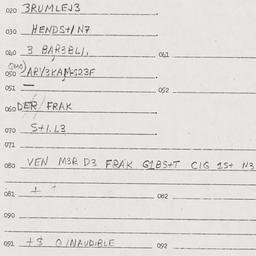 020 3RUMLEJ3
030 HENDS+/N7
040 3 BAR3BL1, 041
050
051 052
060 DER/ FRAK
070 S+1.L3
071
080 VEN M3R D3 FRAK G1BS+T C1G 1S+ N3
081 + + 082
090
091 +3 0/NAUDIBLE 092